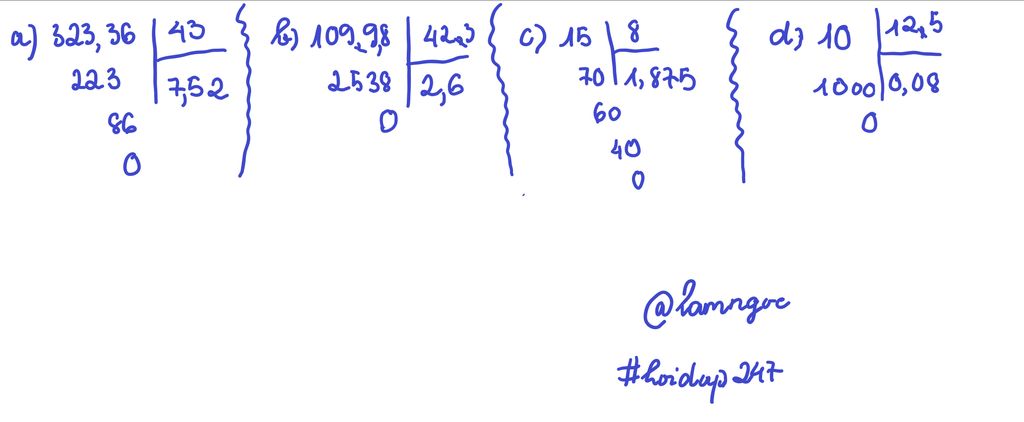 a) 323,36 43
223 7,52
86
0
b) 109,9,8 42,3
2538 2,6
0
c) 15 8
70 1,875
60
40
0
d) 10 12,5
1000 0,08
0
@lamngoc
#hoidap247